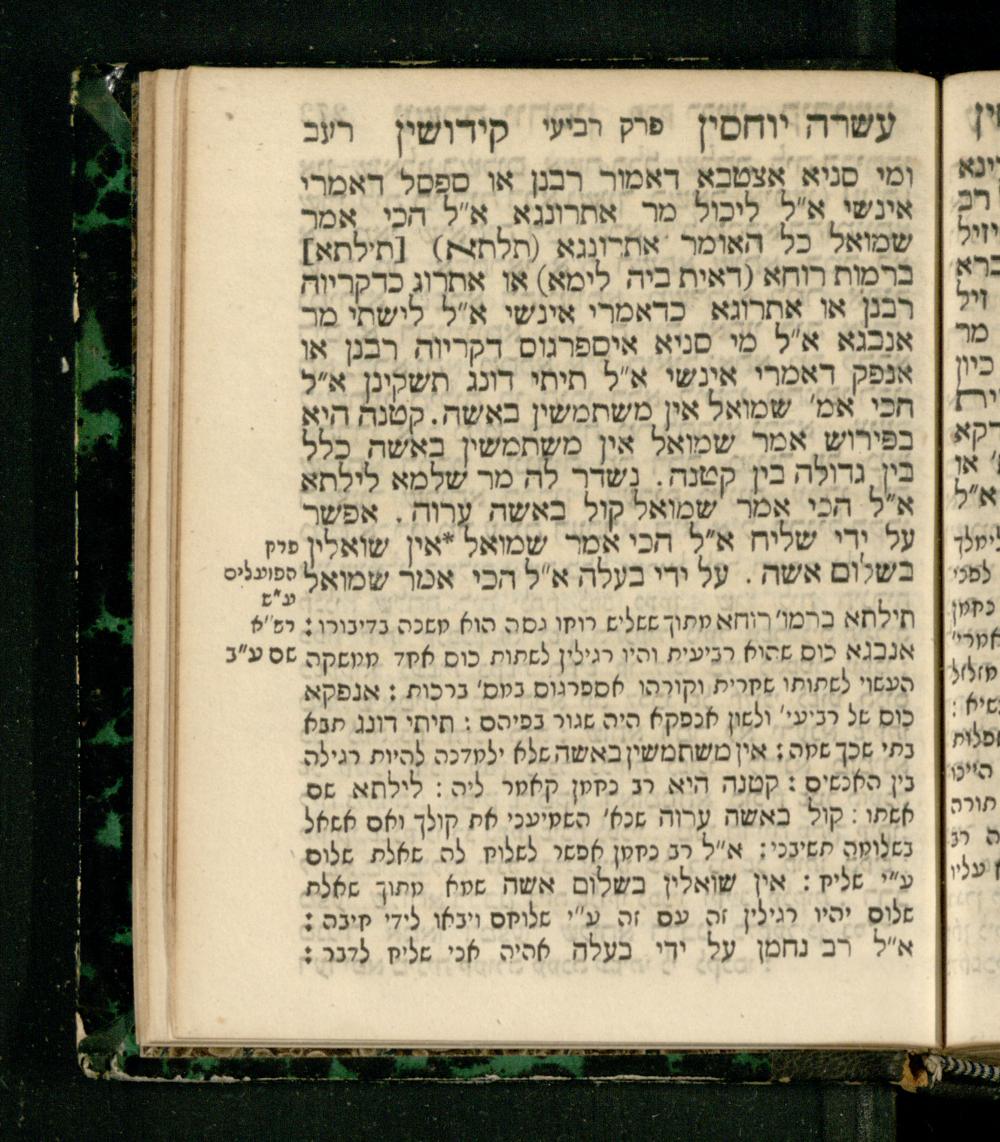 עשרה יוחסין פרק רביעי קידושין רעב
ומי סניא אצטבא דאמור רבנן או ספסל דאמרי
אינשי א"ל ליכול מר אתרונגא א"ל הכי אמר
שמואל כל האומר אתרונגא (תלתא) [תילתא]
ברמות רוחא (דאית ביה לימא) או אתרוג כדקריוה
רבנן או אתרוגא כדאמרי אינשי א"ל לישתי מר
אנבגא א"ל מי סניא איספרגוס דקריוה רבנן או
אנפק דאמרי אינשי א"ל תיתי דונג תשקינן א"ל
הכי אמ' שמואל אין משתמשין באשה. קטנה היא
בפירוש אמר שמואל אין משתמשין באשה כלל
בין גדולה בין קטנה. נשדר לה מר שלמא לילתא
א"ל הכי אמר שמואל קול באשה ערוה. אפשר
על ידי שליח א"ל הכי אמר שמואל *אין שואלין
בשלום אשה. על ידי בעלה א"ל הכי אמר שמואל
תילתא ברמו' רוחא מתוך ששליש רוחו גסה הוא משנה בדיבורו:
אנבגא כוס שהוא רביעית והיו רגילין לשתות כוס אחד ממשקה
העשוי לשתותו שחרית וקורהו אספרגוס במס' ברכות: אנפקא
כוס של רביעי' ולשון אנפקא היה שגור בפיהם: תיתי דונג תבא
בתי שכך שמה: אין משתמשין באשה שלא ילמדנה להיות רגילה
בין האנשים: קטנה היא רב נחמן קאמר ליה: לילתא שם
אשתו: קול באשה ערוה שנא' השמיעני את קולך ואם אשאל
בשלומה תשיבני: א"ל רב נחמן אפשר לשלוח לה שאלת שלום
ע"י שליח: אין שואלין בשלום אשה שמא מתוך שאלת
שלום יהיו רגילין זה עם זה ע"י שלוחם ויבאו לידי חיבה:
א"ל רב נחמן על ידי בעלה אהיה אני שליח לדבר:
פרק
הפועלים
ע"ש
רש"א
שם ע"ב
ין
רב
זיל
מר
כיון
דקא
א"ל
לפני
נחמן
תורה
ה רב
עליו